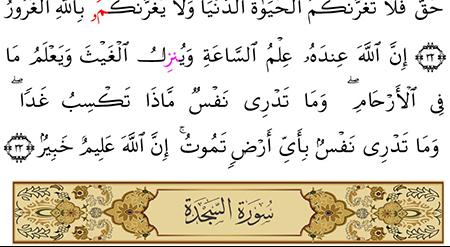 حَقٌّ فَلَا تَغُرَّنَّكُمُ ٱلْحَيَوٰةُ ٱلدُّنْيَا وَلَا يَغُرَّنَّكُمُۥ بِٱللَّهِ ٱلْغَرُورُ
﴿٣٢﴾ إِنَّ ٱللَّهَ عِندَهُۥ عِلْمُ ٱلسَّاعَةِ وَيُنزِلُ ٱلْغَيْثَ وَيَعْلَمُ مَا
فِى ٱلْأَرْحَامِۖ وَمَا تَدْرِى نَفْسٌ مَّاذَا تَكْسِبُ غَدًاۖ
وَمَا تَدْرِى نَفْسٌۢ بِأَىِّ أَرْضٍ تَمُوتُۚ إِنَّ ٱللَّهَ عَلِيمٌ خَبِيرٌۢ ﴿٣٣﴾
سُورَةُ السَّجْدَةِ